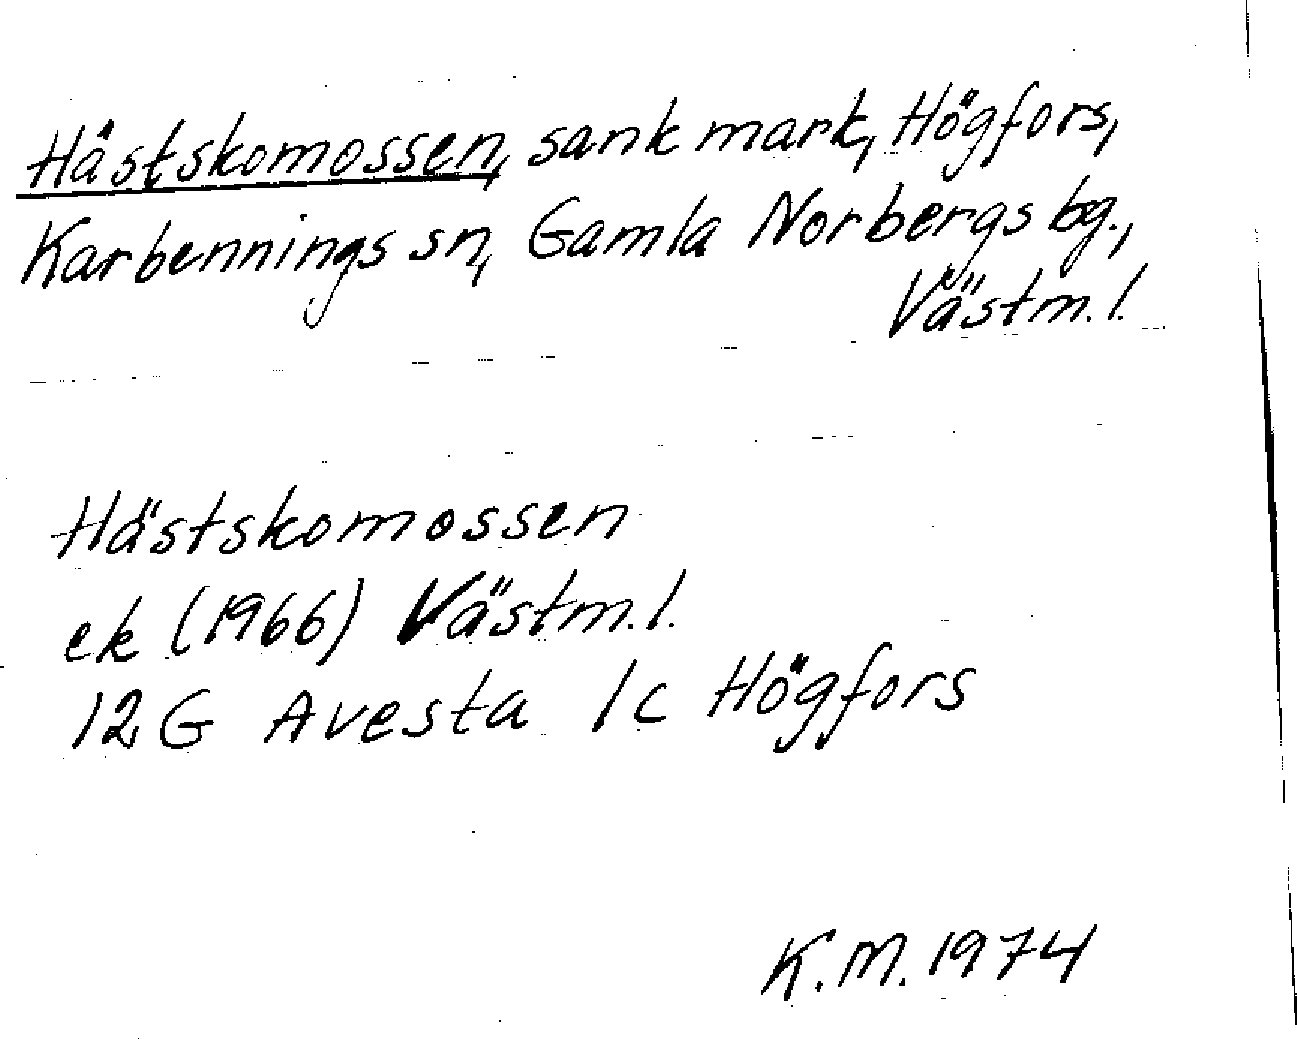 Hästskomossen, sank mark, Högfors,
Karbennings sn, Gamla Norbergs bg.,
Västm. l.
Hästskomossen
ek (1966) Västm. l.
12 G Avesta 1c Högfors
K. M. 1974